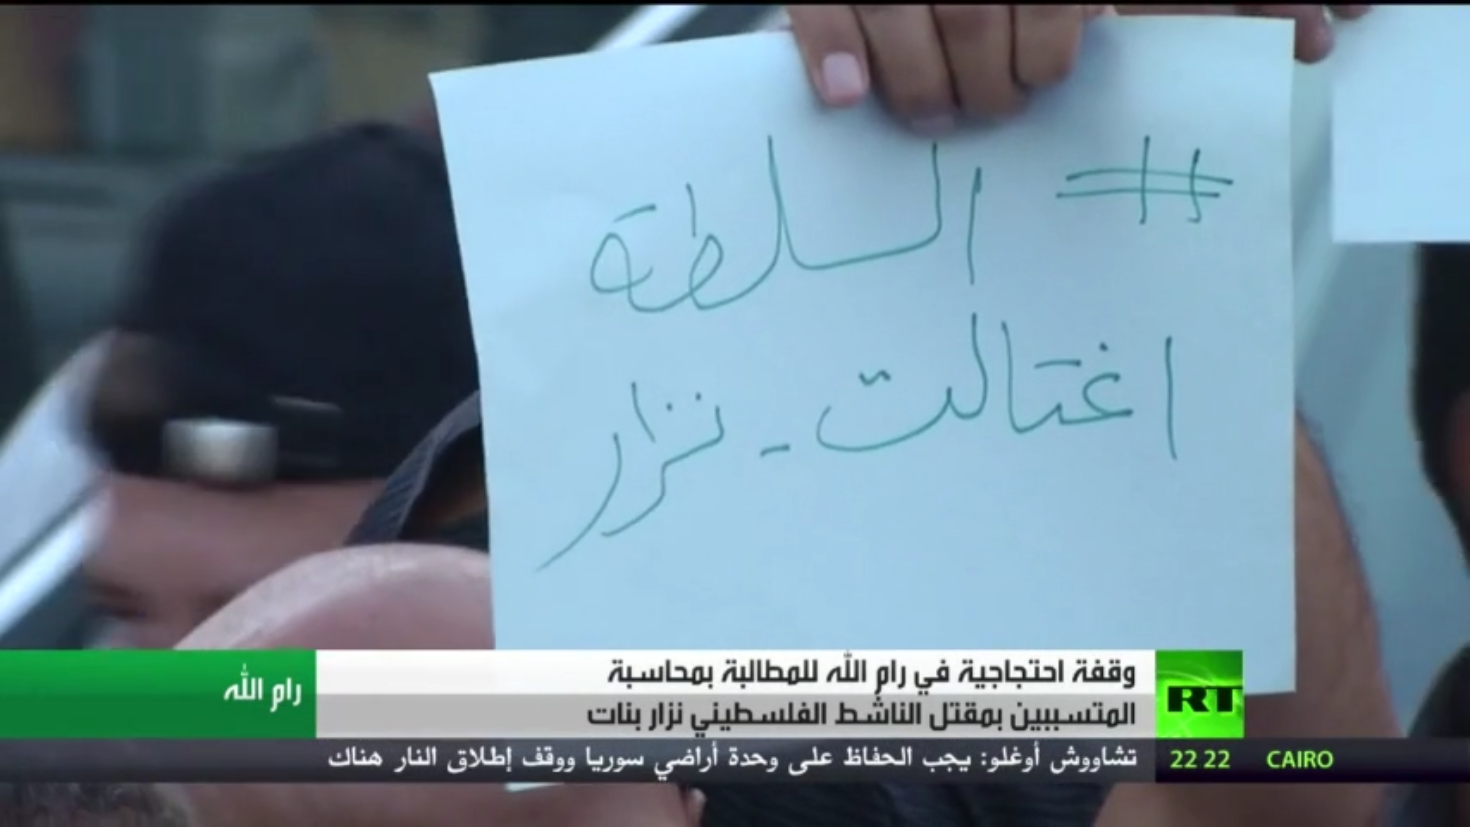 # السلطة
اغتالت - نزار
وقفة احتجاجية في رام الله للمطالبة بمحاسبة
المتسببين بمقتل الناشط الفلسطيني نزار بنات
رام الله
RT
تشاووش أوغلو: يجب الحفاظ على وحدة أراضي سوريا ووقف إطلاق النار هناك
22 22 CAIRO